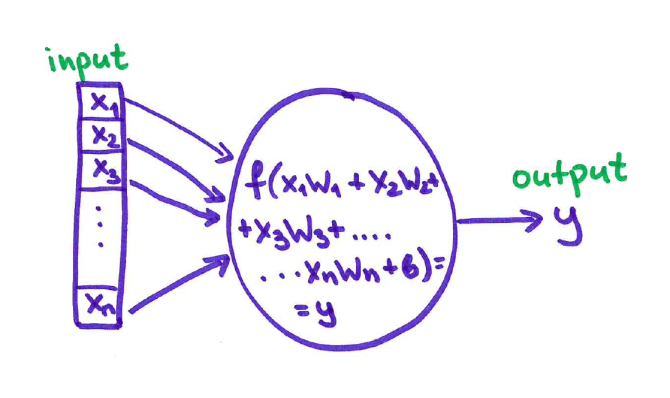 input
x1
x2
x3
⋮
xn
f(x1w1 + x2w2+
+x3w3+....
...xnwn+b)=
=y
output
y